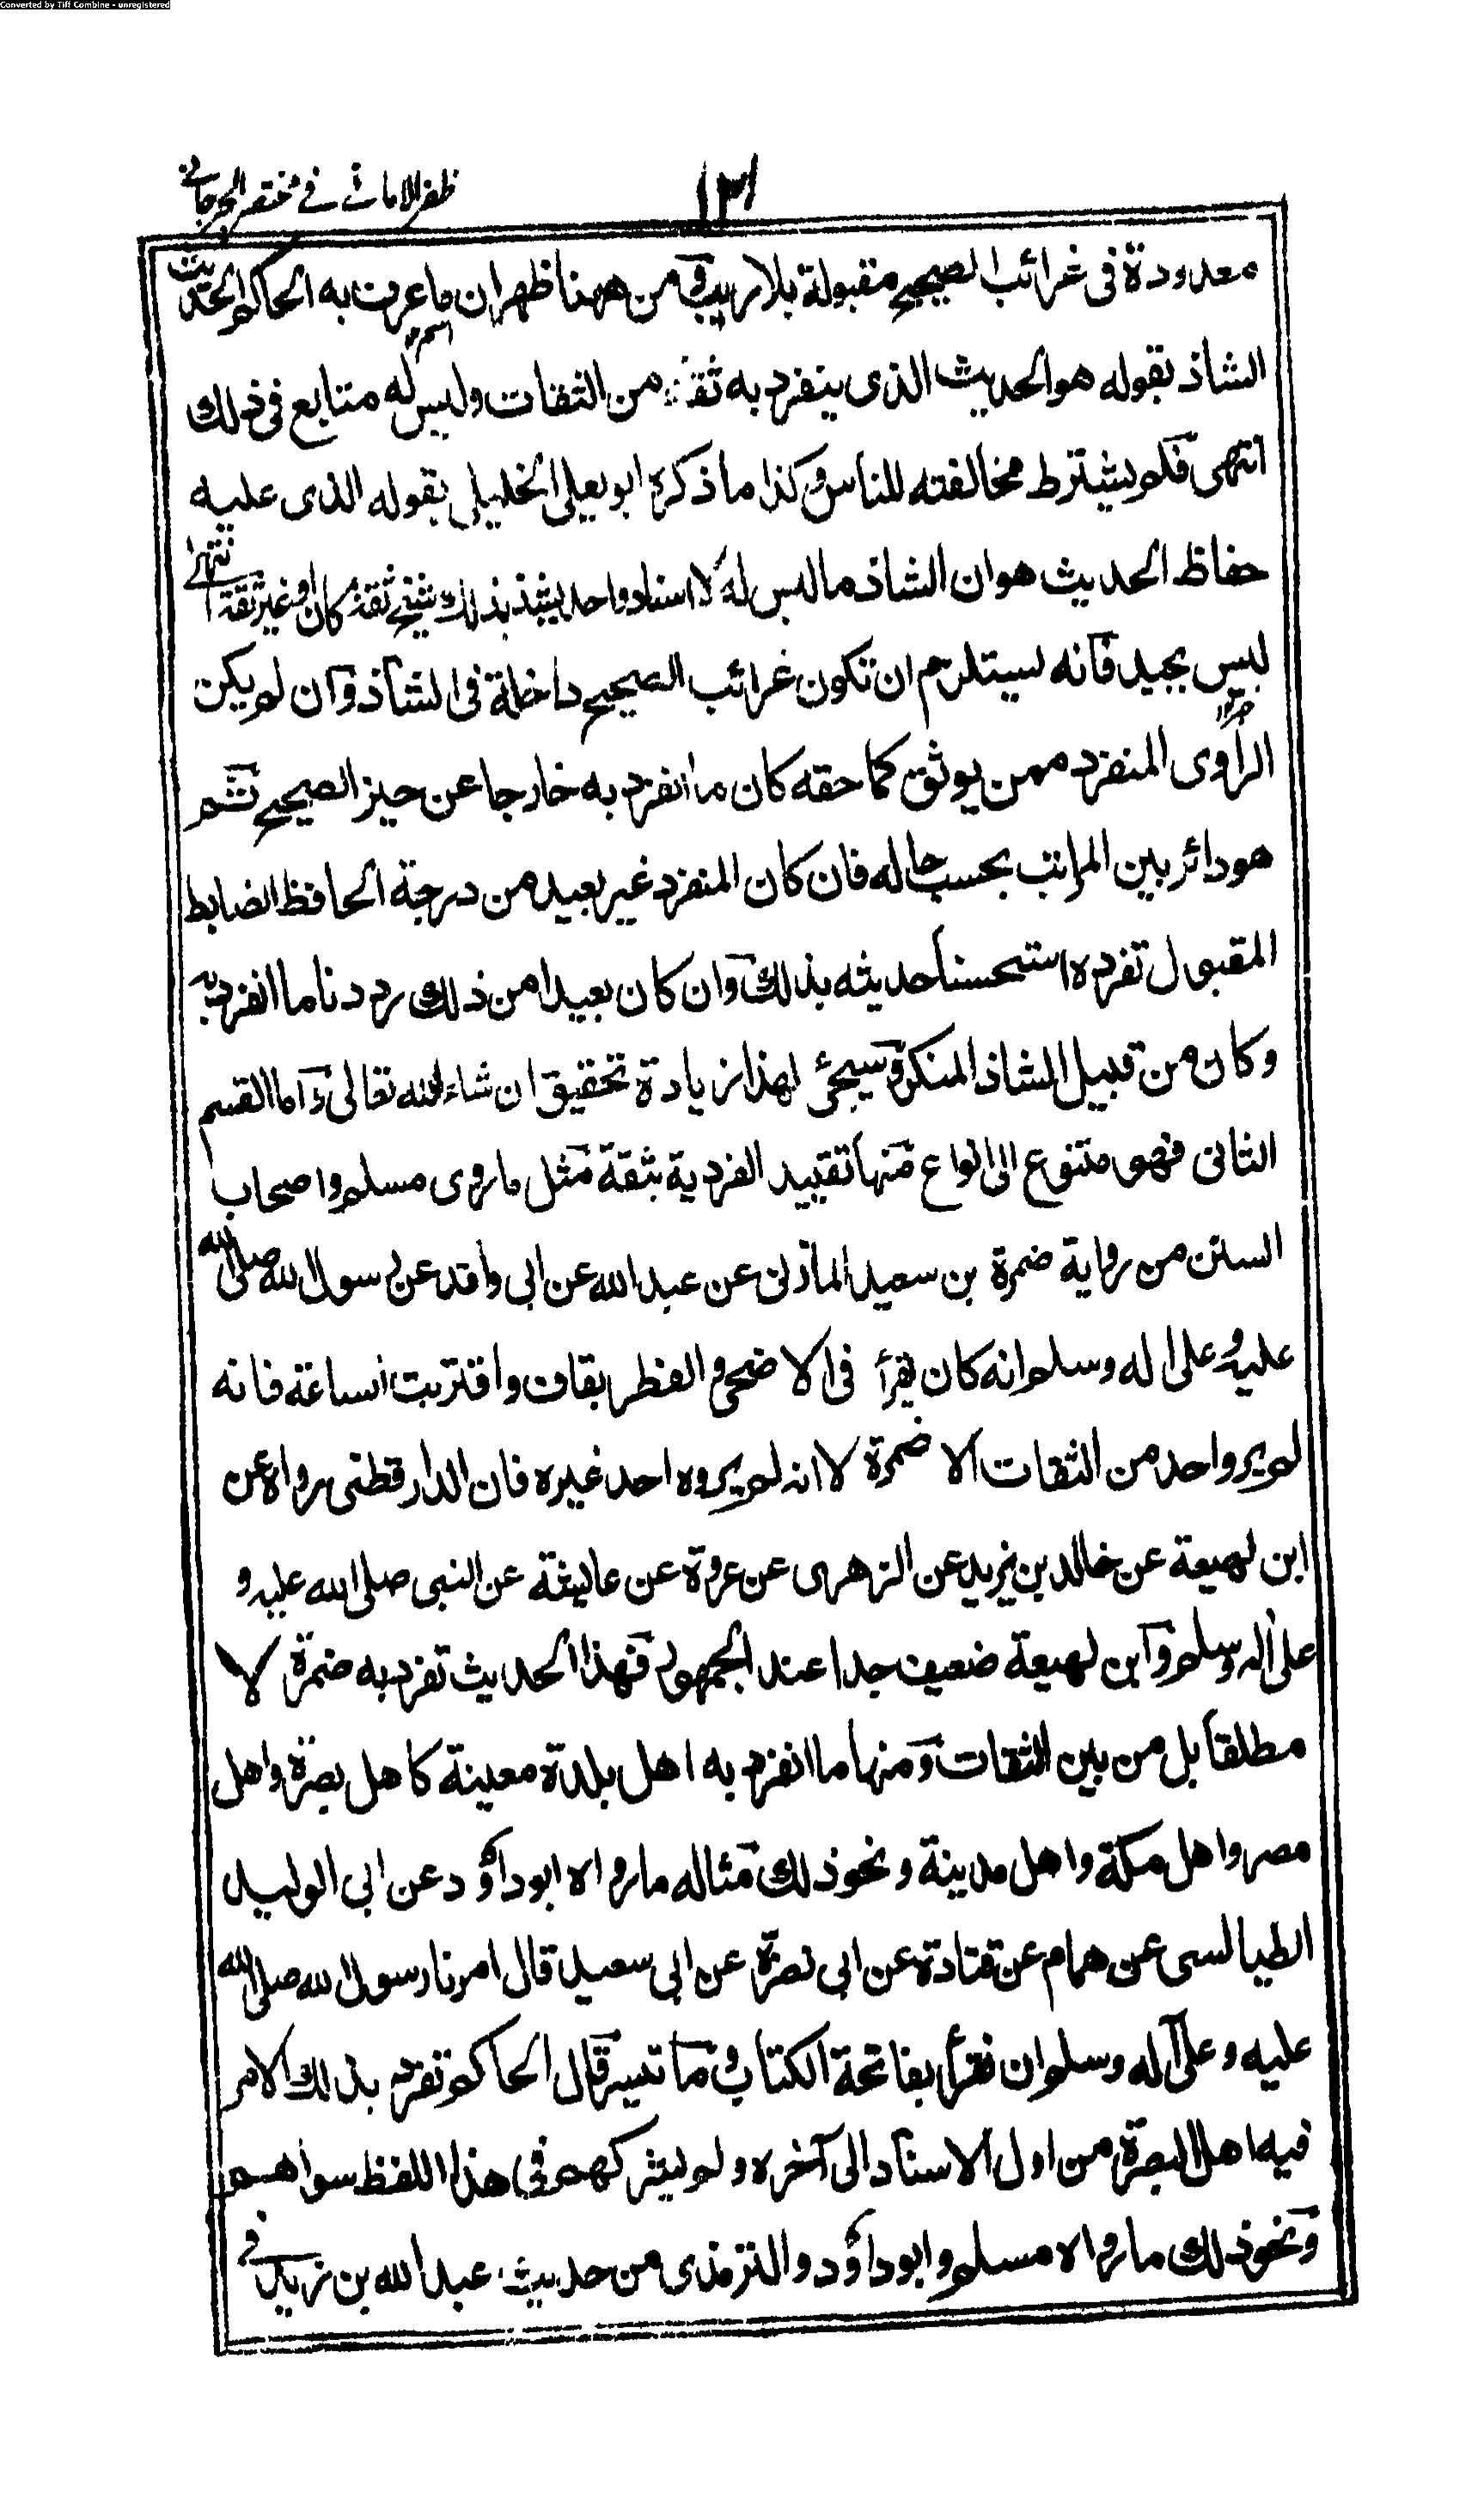 Converted by Tiff Combine - unregistered
ظفر الامانی فی مختصر الجرجانی
معدودة فى غرائب الصحيح مقبولة بلا ريب ومن ههنا ظهر ان ما عرف به الحاكم الحديث
الشاذ بقوله هو الحديث الذى ينفرد به ثقة من الثقات وليس له متابع فى ذلك
انتهى فلم يشترط مخالفته للناس وكذا ما ذكره ابو يعلى الخليلى بقوله الذى عليه
حفاظ الحديث هو ان الشاذ ما ليس له الا اسناد واحد يشذ بذلك شيخ ثقة كان او غير ثقة انتهى
ليس بجيد فانه يستلزم ان تكون غرائب الصحيح داخلة فى الشاذ وان لم يكن
الراوى المنفرد ممن يوثق كما حقه كان ما انفرد به خارجا عن حيز الصحيح ثم
هو دائر بين المراتب بحسب حاله فان كان المنفرد غير بعيد من درجة الحافظ الضابط
المقبول تفرده استحسنا حديثه بذلك وان كان بعيدا من ذلك رددنا ما انفرد به
وكان من قبيل الشاذ المنكر وسيجئ لهذا زيادة تحقيق ان شاء الله تعالى واما القسم
الثانى فهو متنوع الى انواع منها تقييد الفردية بثقة مثل ما روى مسلم واصحاب
السنن من رواية ضمرة بن سعيد المازنى عن عبد الله عن ابى واقد عن رسول الله صلى الله
عليه وعلى اله وسلم انه كان يقرأ فى الاضحى والفطر بقاف واقتربت الساعة فانه
لم يرو احد من الثقات الا ضمرة لا انه لم يروه احد غيره فان الدار قطنى رواه عن
ابن لهيعة عن خالد بن يزيد عن الزهرى عن عروة عن عائشة عن النبى صلى الله عليه و
على اله وسلم وابن لهيعة ضعيف جدا عند الجمهور فهذا الحديث تفرد به ضمرة لا
مطلقا بل من بين الثقات ومنها ما انفرد به اهل بلدة معينة كاهل بصرة واهل
مصر واهل مكة واهل مدينة ونحو ذلك مثاله ما رواه ابو داؤد عن ابى الوليد
الطيالسى عن همام عن قتادة عن ابى نضرة عن ابى سعيد قال امرنا رسول الله صلى الله
عليه وعلى آله وسلم ان نقرأ بفاتحة الكتاب وما تيسر قال الحاكم تفرد بذلك الامر
فيه اهل البصرة من اول الاسناد الى آخره ولم يشركهم فى هذا اللفظ سواهم
ونحو ذلك ما رواه مسلم وابو داؤد والترمذى من حديث عبد الله بن زيد فى